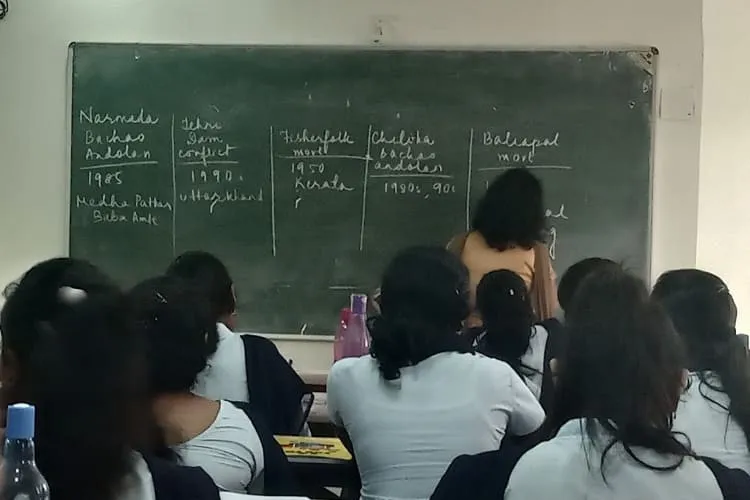 Narmada
Bachao
Andolan
1985
Medha Patkar
Baba Amte
Tehri
Dam
conflict
1990s
Uttarkhand
Fisherfolk
movt
1950
Kerala
Chilika
Bachao
andolan
1980s, 90s
Baliapal
movt